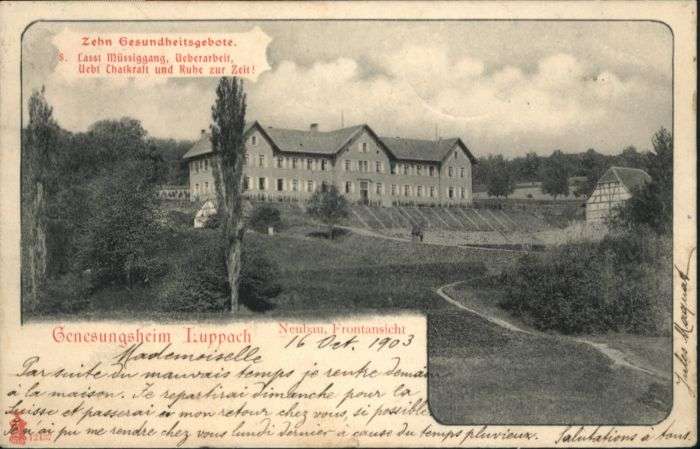 Zehn Gesundheitsgebote.
8. Lasst Müssiggang, Ueberarbeit,
Uebt Thatkraft und Ruhe zur Zeit!
Genesungsheim Luppach
Neubau, Frontansicht
16 Oct. 1903
Mademoiselle
Par suite du mauvais temps je rentre demain
à la maison. Je repartirai dimanche pour la
Suisse et passerai à mon retour chez vous, si possible
Je n'ai pu me rendre chez vous lundi dernier à cause du temps pluvieux. Salutations à tous.
Jules